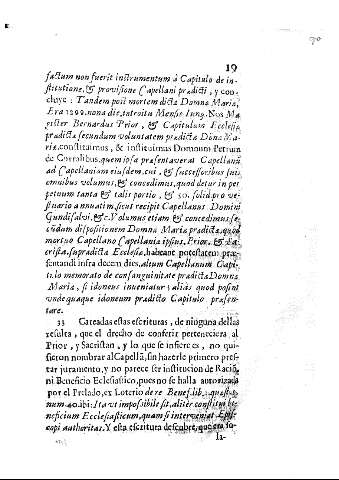 19
factum non fuerit instrumentum à Capitulo de in-
stitutione, & provisione Capellani prædicti, y con-
cluye: Tandem post mortem dictæ Domnæ Maria,
Era 1399. nona die, introitu Mensis Iunij. Nos Ma
gister Bernardus Prior, & Capitulum Ecclesiæ
prædictæ secundum voluntatem prædictæ Dōnæ Ma-
riæ constituimus, & instituimus Domnum Petrum
de Corralibus, quem ipsa præsentaverat Capellanū
ad Capellaniam eiusdem, cui, & successoribus suis
omnibus volumus, & concedimus, quod detur in per
petuum tanta & talis portio, & 50. solid. pro ve-
stuario annuatim, sicut recipit Capellanus Domini
Gundisalvi, &c. Volumus etiam & concedimus, se-
cūdum dispositionem Domnæ Maria prædicta, quod
mortuo Capellano Capellaniæ ipsius, Prior, & Sa-
crista, supradicta Ecclesia, habeant potestatem præ-
sentandi infra decem dies, alium Capellanum Capi-
tulo memorato de consanguinitate prædictæ Domnæ
Maria, si idoneus inveniatur, aliàs quod possint
undequaque idoneum prædicto Capitulo præsen-
tare.
33 Careadas estas escrituras, de ninguna dellas
resulta, que el drecho de conferir perteneciera al
Prior, y Sacristan, y lo que se infiere es, no qui-
sieron nombrar al Capellā, sin hazerle primero pres-
tar juramento, y no parece ser institucion de Raciō,
ni Beneficio Eclesiastico, pues no se halla autorizada
por el Prelado, ex Loterio de re Benef. lib.
num. 40. ibi: Ita ut impossibile sit, aliter constitui be
neficium Ecclesiasticum, quam si interveniat Epis-
copi authoritas. Y esta escritura descubre, que era so-
la-